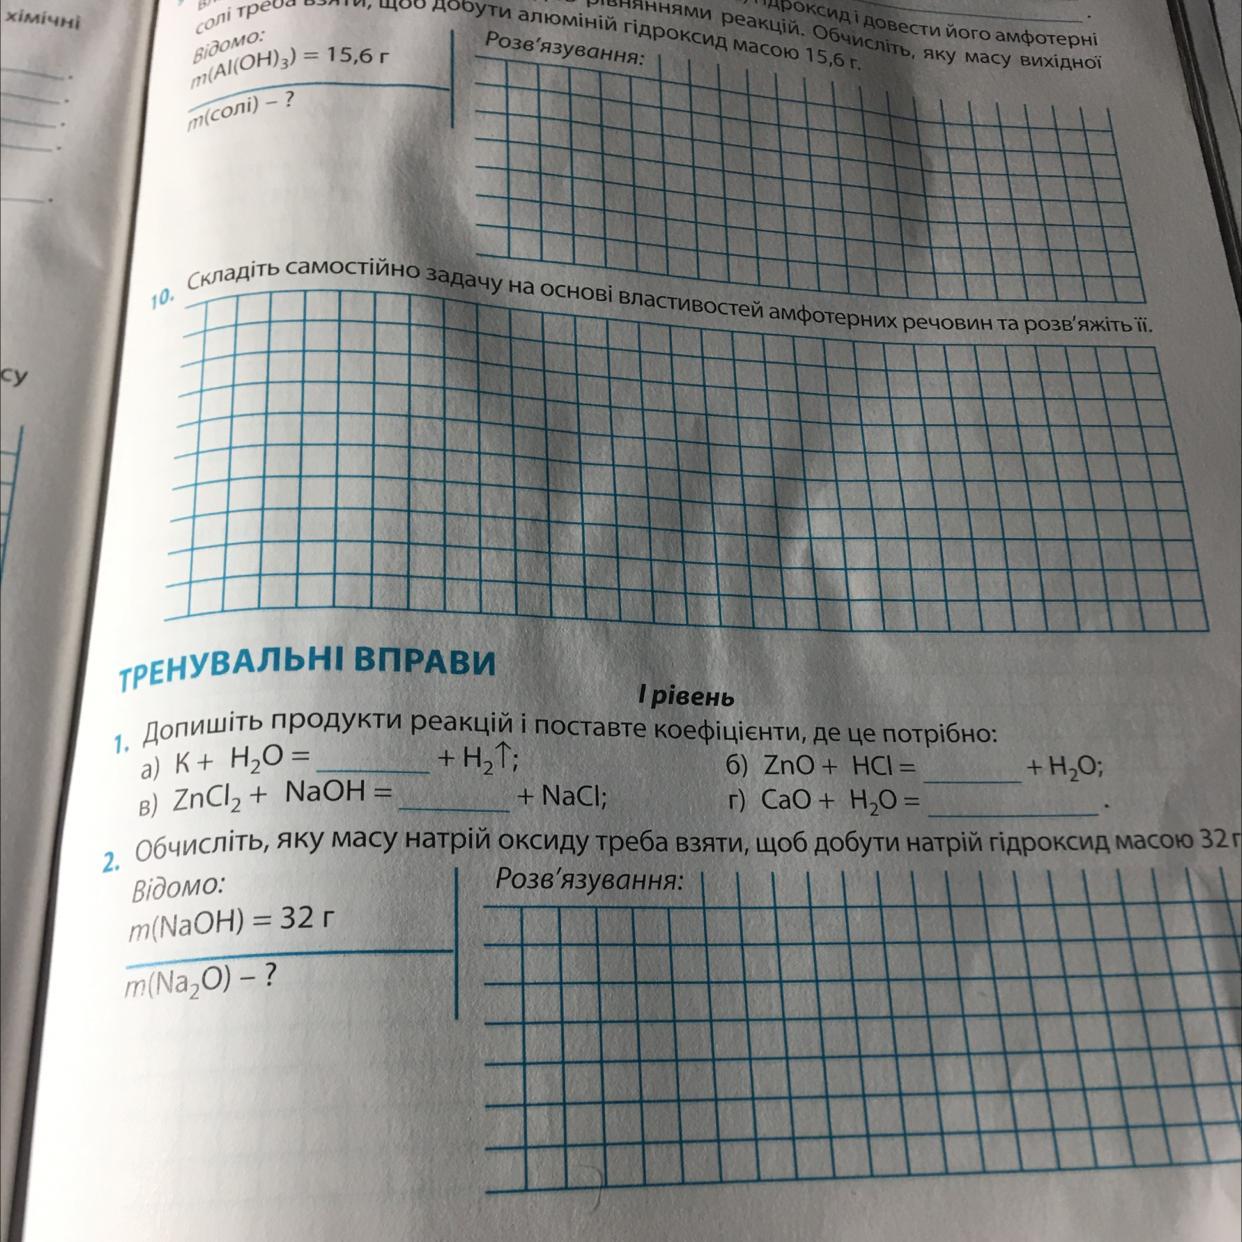 хімічні
су
дроксид і довести його амфотерні
рівняннями реакцій. Обчисліть, яку масу вихідної
солі треба взяти, щоб добути алюміній гідроксид масою 15,6 г.
Відомо:
m(Al(OH)₃) = 15,6 г
m(солі) – ?
Розв'язування:
10. Складіть самостійно задачу на основі властивостей амфотерних речовин та розв'яжіть її.
ТРЕНУВАЛЬНІ ВПРАВИ
І рівень
1. Допишіть продукти реакцій і поставте коефіцієнти, де це потрібно:
а) K + H₂O = ________ + H₂↑; б) ZnO + HCl = ________ + H₂O;
в) ZnCl₂ + NaOH = ________ + NaCl; г) CaO + H₂O = ________ .
2. Обчисліть, яку масу натрій оксиду треба взяти, щоб добути натрій гідроксид масою 32 г
Відомо:
m(NaOH) = 32 г
m(Na₂O) – ?
Розв'язування: